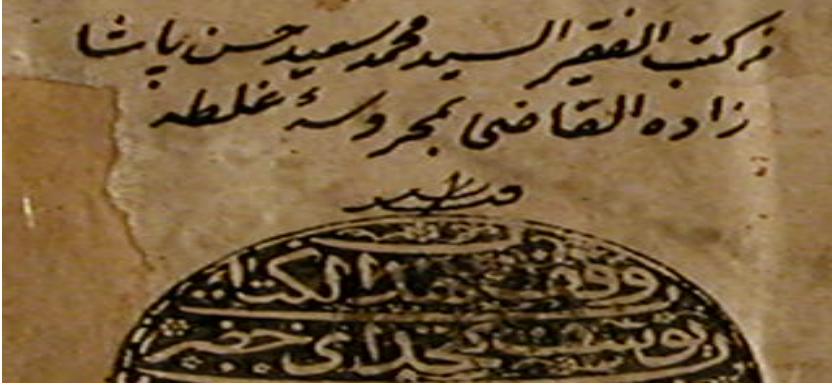 من كتب الفقير السيد محمد سعيد حسن پاشا
زاده القاضى بمحروسهٔ غلطه
وقف هذا الكتاب
يوسف كتخداى خضر